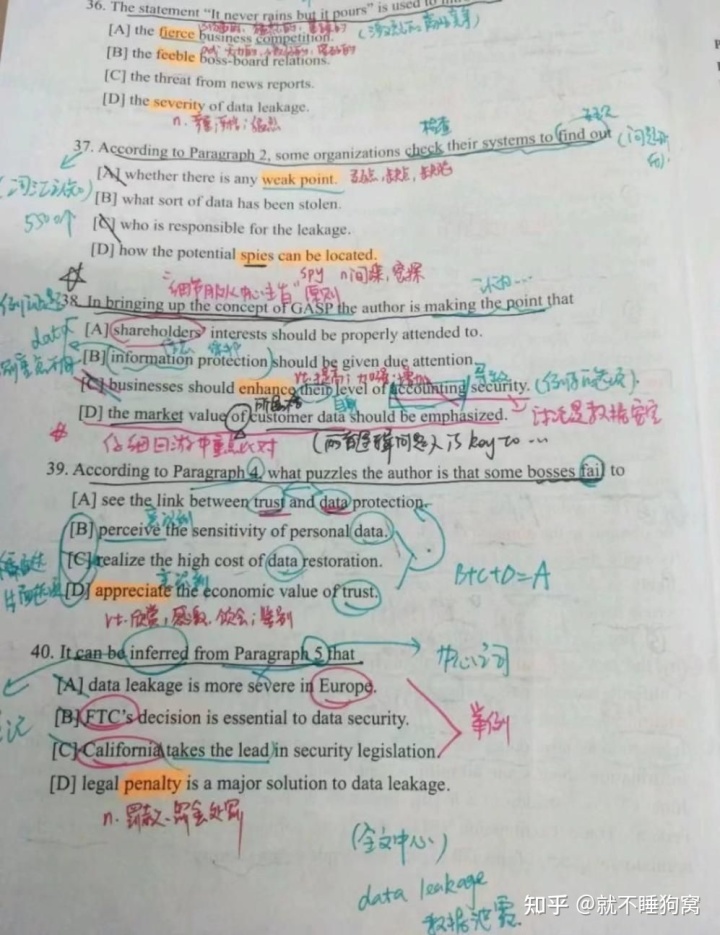 36. The statement "It never rains but it pours" is used to
[A] the fierce business competition.
[B] the feeble boss-board relations.
[C] the threat from news reports.
[D] the severity of data leakage.
n.
37. According to Paragraph 2, some organizations check their systems to find out
检查
[A] whether there is any weak point. 弱点,缺点,缺陷
[B] what sort of data has been stolen.
5500个
[C] who is responsible for the leakage.
[D] how the potential spies can be located.
spy n间谍,密探
"细节服从中心主旨"原则
38. In bringing up the concept of GASP the author is making the point that
[A] shareholders' interests should be properly attended to.
data
[B] information protection should be given due attention.
[C] businesses should enhance their level of accounting security.
[D] the market value of customer data should be emphasized.
key to ...
39. According to Paragraph 4, what puzzles the author is that some bosses fail to
[A] see the link between trust and data protection.
[B] perceive the sensitivity of personal data.
[C] realize the high cost of data restoration.
B+C+D=A
[D] appreciate the economic value of trust.
vt.欣赏,感激,领会;鉴别
40. It can be inferred from Paragraph 5 that
中心词
[A] data leakage is more severe in Europe.
[B] FTC's decision is essential to data security.
举例
[C] California takes the lead in security legislation.
[D] legal penalty is a major solution to data leakage.
n.罚款、罚金处罚
(全文中心)
data leakage
数据泄露
知乎 @就不睡狗窝